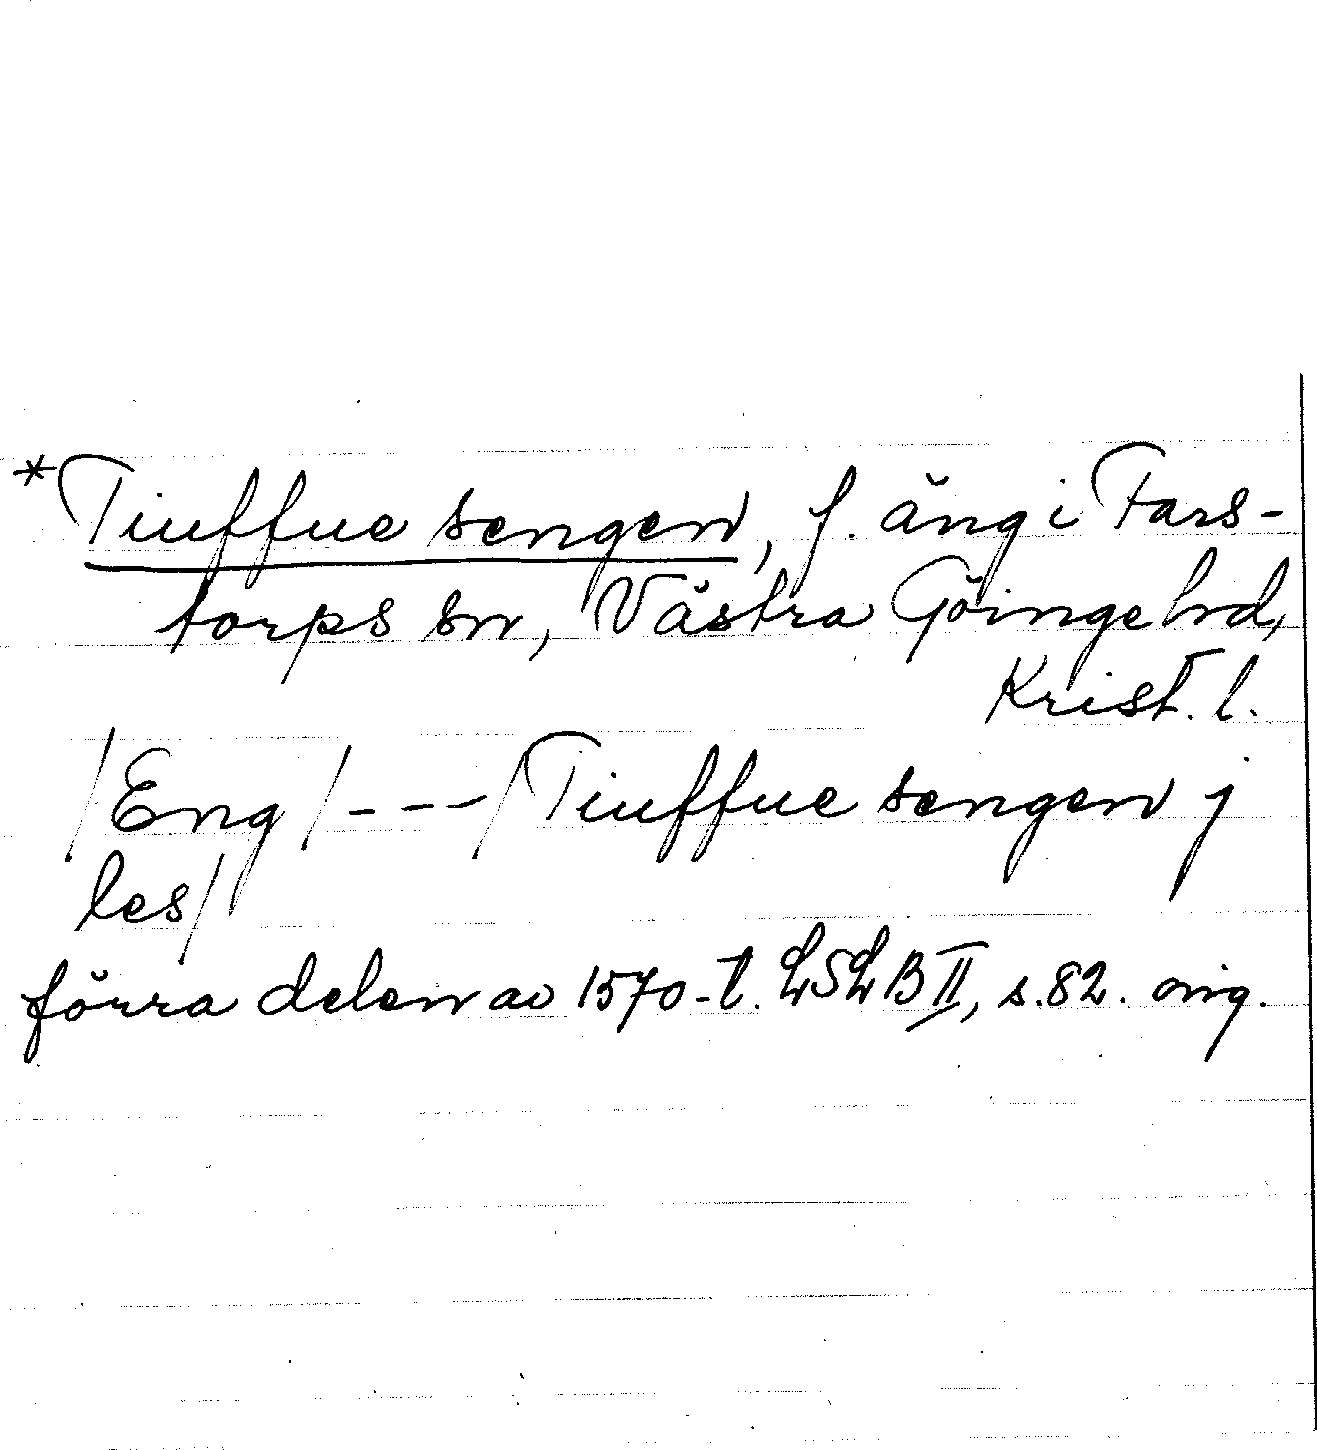 *Tiuffue sengen, f. äng i Fars-
torps sn, Västra Göinge hd,
Krist. l.
/Eng/---/Tiuffue sengen j
les/
förra delen av 1570-t. LSLB II, s.82. orig.